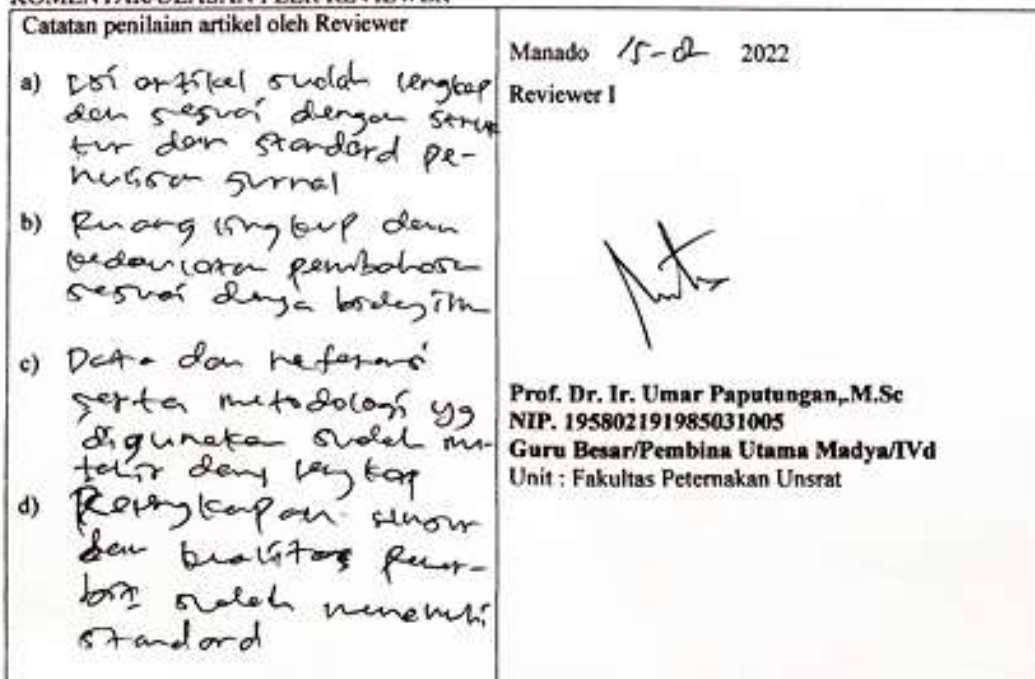 KOMENTAR/ULASAN PEER REVIEWER
Catatan penilaian artikel oleh Reviewer
a) Isi artikel sudah lengkap
dan sesuai dengan struk
tur dan standard pe-
nulisan jurnal
b) Ruang lingkup dan
kedalaman pembahasan
sesuai dengan bidang ilmu
c) Data dan referensi
serta metodologi yg
digunakan sudah mu-
tahir dan lengkap
d) Kelengkapan unsur
dan kualitas pener-
bit sudah memenuhi
standard
Manado 15- 2022
Reviewer I
Prof. Dr. Ir. Umar Paputungan,.M.Sc
NIP. 195802191985031005
Guru Besar/Pembina Utama Madya/IVd
Unit : Fakultas Peternakan Unsrat